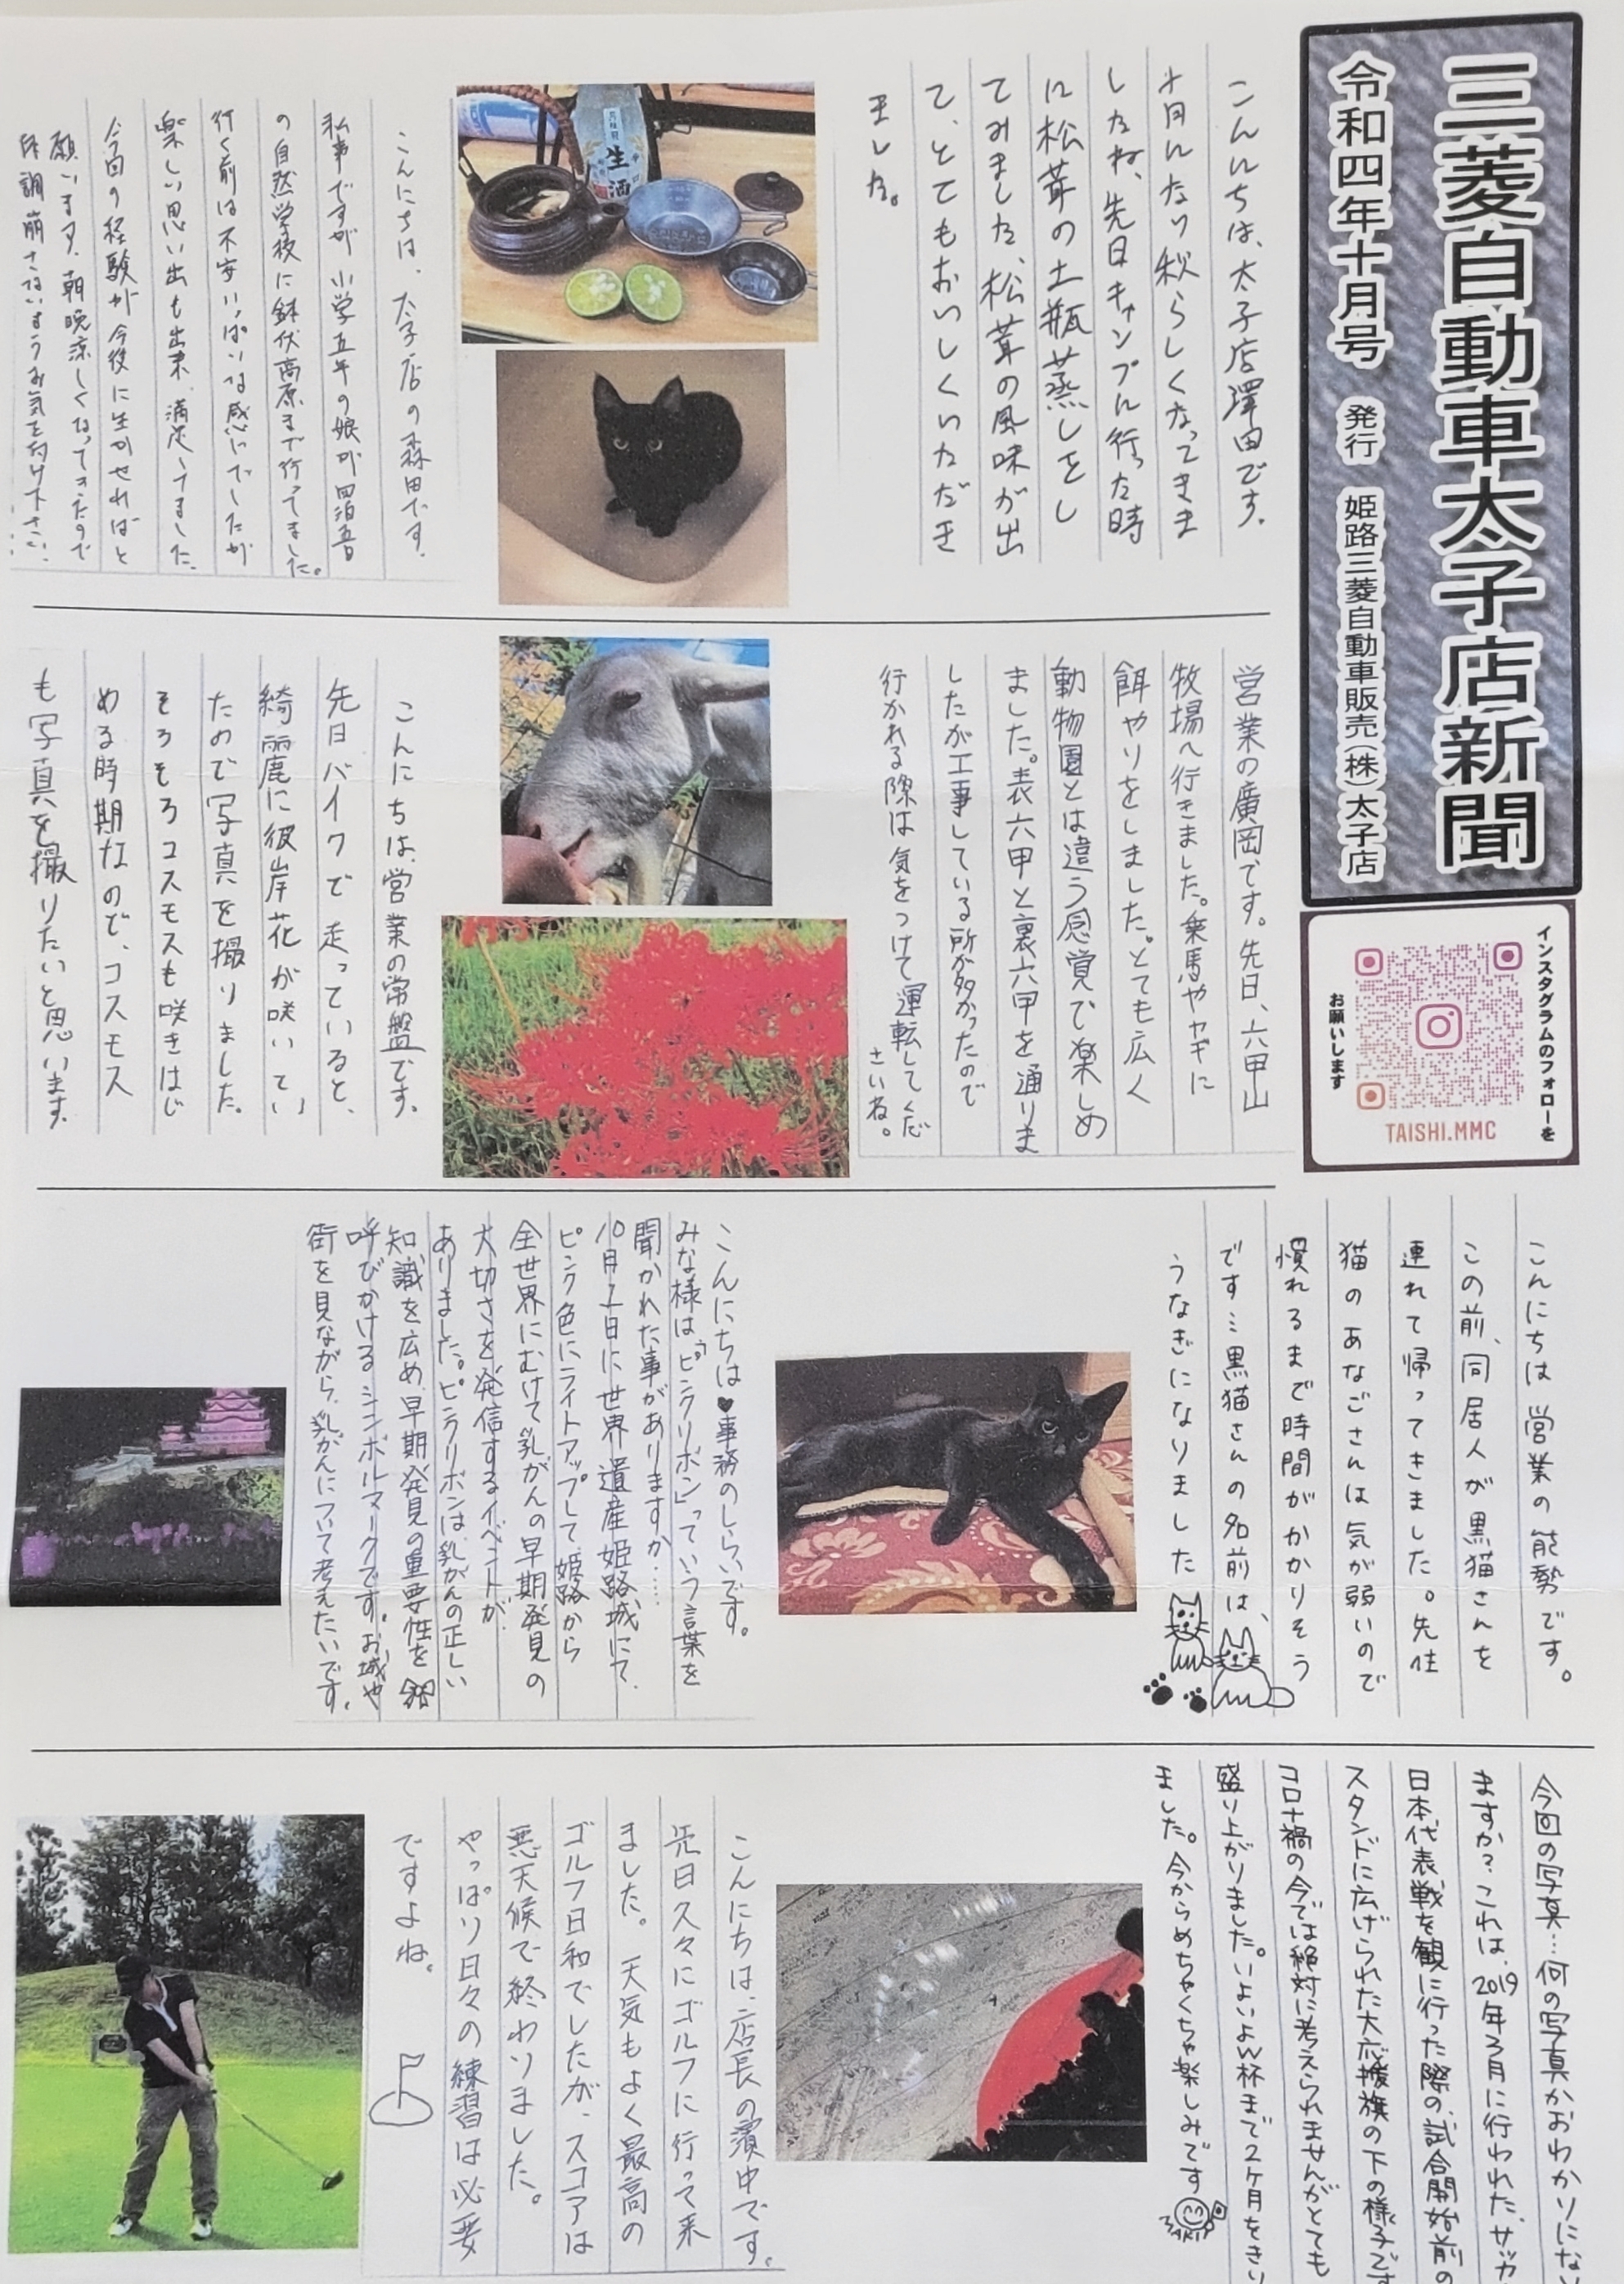 三菱自動車太子店新聞
令和四年十月号 発行 姫路三菱自動車販売(株)太子店
インスタグラムのフォローを
お願いします
TAISHI.MMC
こんにちは、太子店澤田です。
十月になり秋らしくなってきま
したね、先日キャンプに行った時
に松茸の土瓶蒸しをし
てみました、松茸の風味が出
て、とてもおいしくいただき
ました。
生酒
こんにちは、太子店の森田です。
私事ですが小学五年の娘が四泊五日
の自然学校に鉢伏高原まで行ってました。
行く前は不安いっぱいな感じでしたが
楽しい思い出も出来、満足してました。
今回の経験が今後に生かせればと
願います。朝晩涼しくなってきたので
体調崩さないようお気を付け下さい。
営業の廣岡です。先日、六甲山
牧場へ行きました。乗馬やヤギに
餌やりをしました。とても広く
動物園とは違う感覚で楽しめ
ました。表六甲と裏六甲を通りま
したが工事している所が多かったので
行かれる際は気をつけて運転してくだ
さいね。
こんにちは、営業の常盤です。
先日バイクで走っていると、
綺麗に彼岸花が咲いてい
たので写真を撮りました。
そろそろコスモスも咲きはじ
める時期なので、コスモス
も写真を撮りたいと思います。
こんにちは営業の能勢です。
この前、同居人が黒猫さんを
連れて帰ってきました。先住
猫のあなごさんは気が弱いので
慣れるまで時間がかかりそう
です…黒猫さんの名前は、
うなぎになりました
こんにちは♥事務のしらいです。
みな様は「ピンクリボン」っていう言葉を
聞かれた事がありますか……
10月1日に世界遺産姫路城にて、
ピンク色にライトアップして、姫路から
全世界にむけて乳がんの早期発見の
大切さを発信するイベントが
ありました。ピンクリボンは、乳がんの正しい
知識を広め、早期発見の重要性を
呼びかけるシンボルマークです。お城や
街を見ながら、乳がんについて考えたいです。
今回の写真…何の写真かおわかりにない
ますか？これは、2019年3月に行われた、サッカ
日本代表戦を観に行った際の、試合開始前の
スタンドに広げられた大応援旗の下の様子です
コロナ禍の今では絶対に考えられませんがとても
盛り上がりました。いよいよW杯まで2ヶ月をきり
ました。今からめちゃくちゃ楽しみです
MAKIP
こんにちは、店長の濱中です。
先日久々にゴルフに行って来
ました。天気もよく最高の
ゴルフ日和でしたが、スコアは
悪天候で終わりました。
やっぱり日々の練習は必要
ですよね。